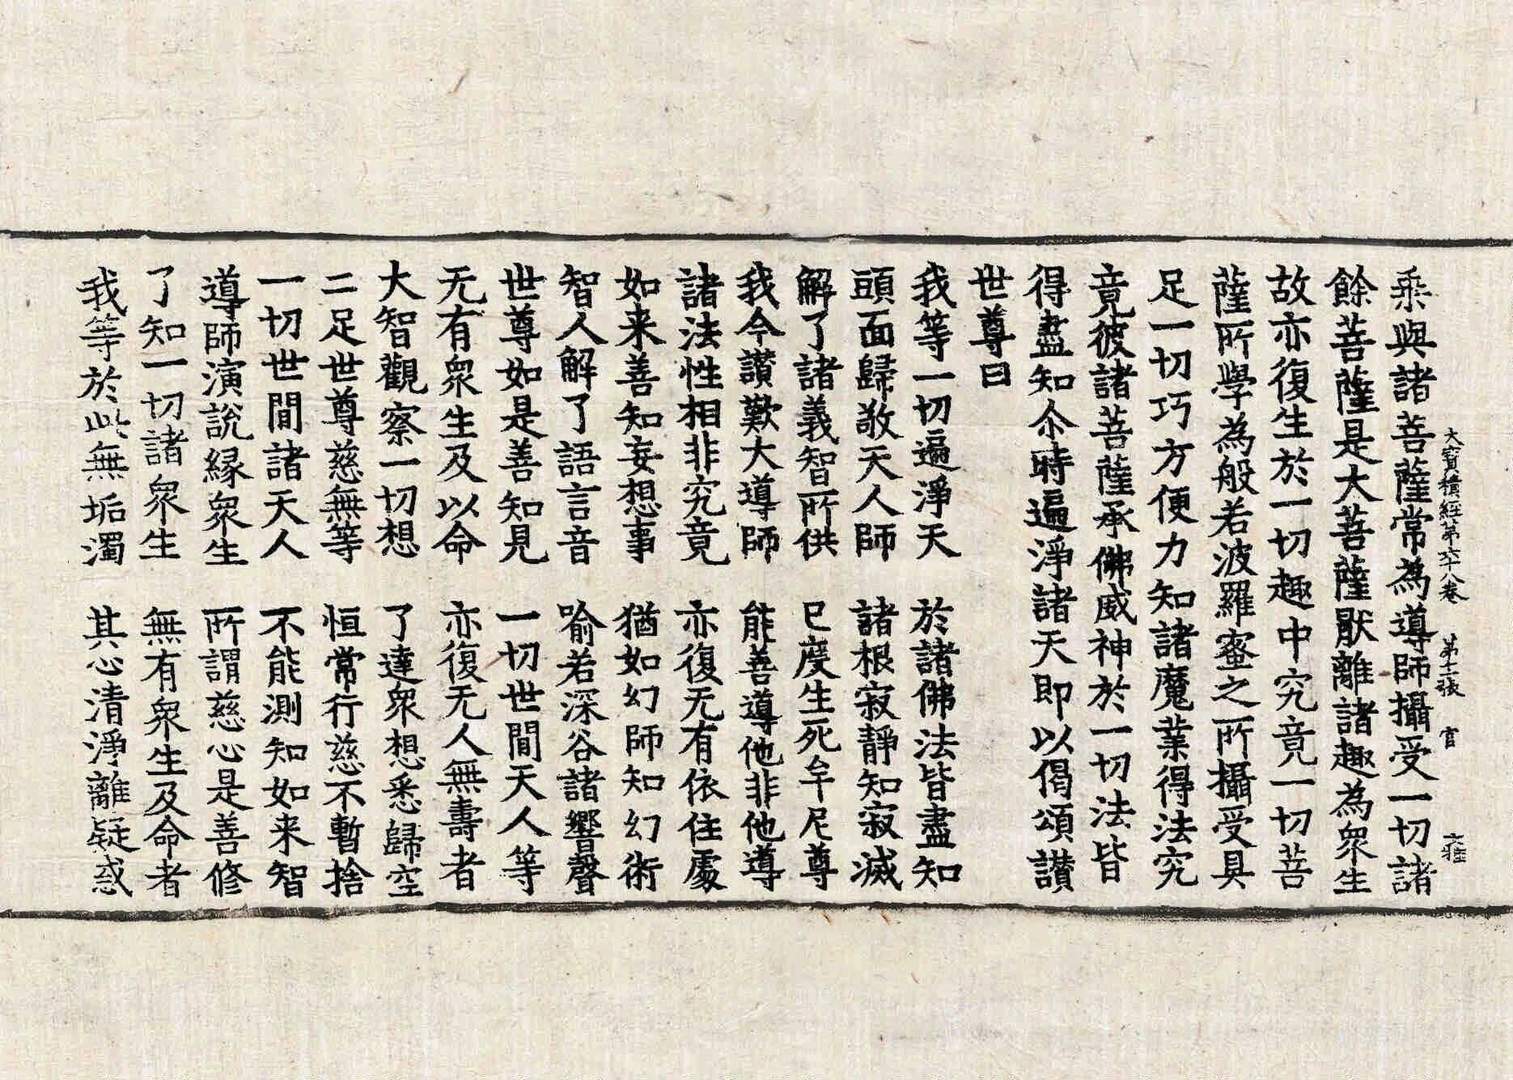 大寶積經第六十八卷　第十一張　官
乘與諸菩薩常為導師攝受一切諸
餘菩薩是大菩薩猒離諸趣為衆生
故亦復生於一切趣中究竟一切菩
薩所學為般若波羅蜜之所攝受具
足一切巧方便力知諸魔業得法究
竟彼諸菩薩承佛威神於一切法皆
得盡知尒時遍淨諸天即以偈頌讃
世尊曰
我等一切遍淨天　於諸佛法皆盡知
頭面歸敬天人師　諸根寂靜知寂滅
解了諸義智所供　已度生死牟尼尊
我今讃歎大導師　能善導他非他導
諸法性相非究竟　亦復无有依住處
如来善知妄想事　猶如幻師知幻術
智人解了語言音　喻若深谷諸響聲
世尊如是善知見　一切世間天人等
无有衆生及以命　亦復无人無壽者
大智觀察一切想　了達衆想悉歸空
二足世尊慈無等　恒常行慈不暫捨
一切世間諸天人　不能測知如来智
導師演說緣衆生　所謂慈心是善修
了知一切諸衆生　無有衆生及命者
我等於此無垢濁　其心清淨離疑惑